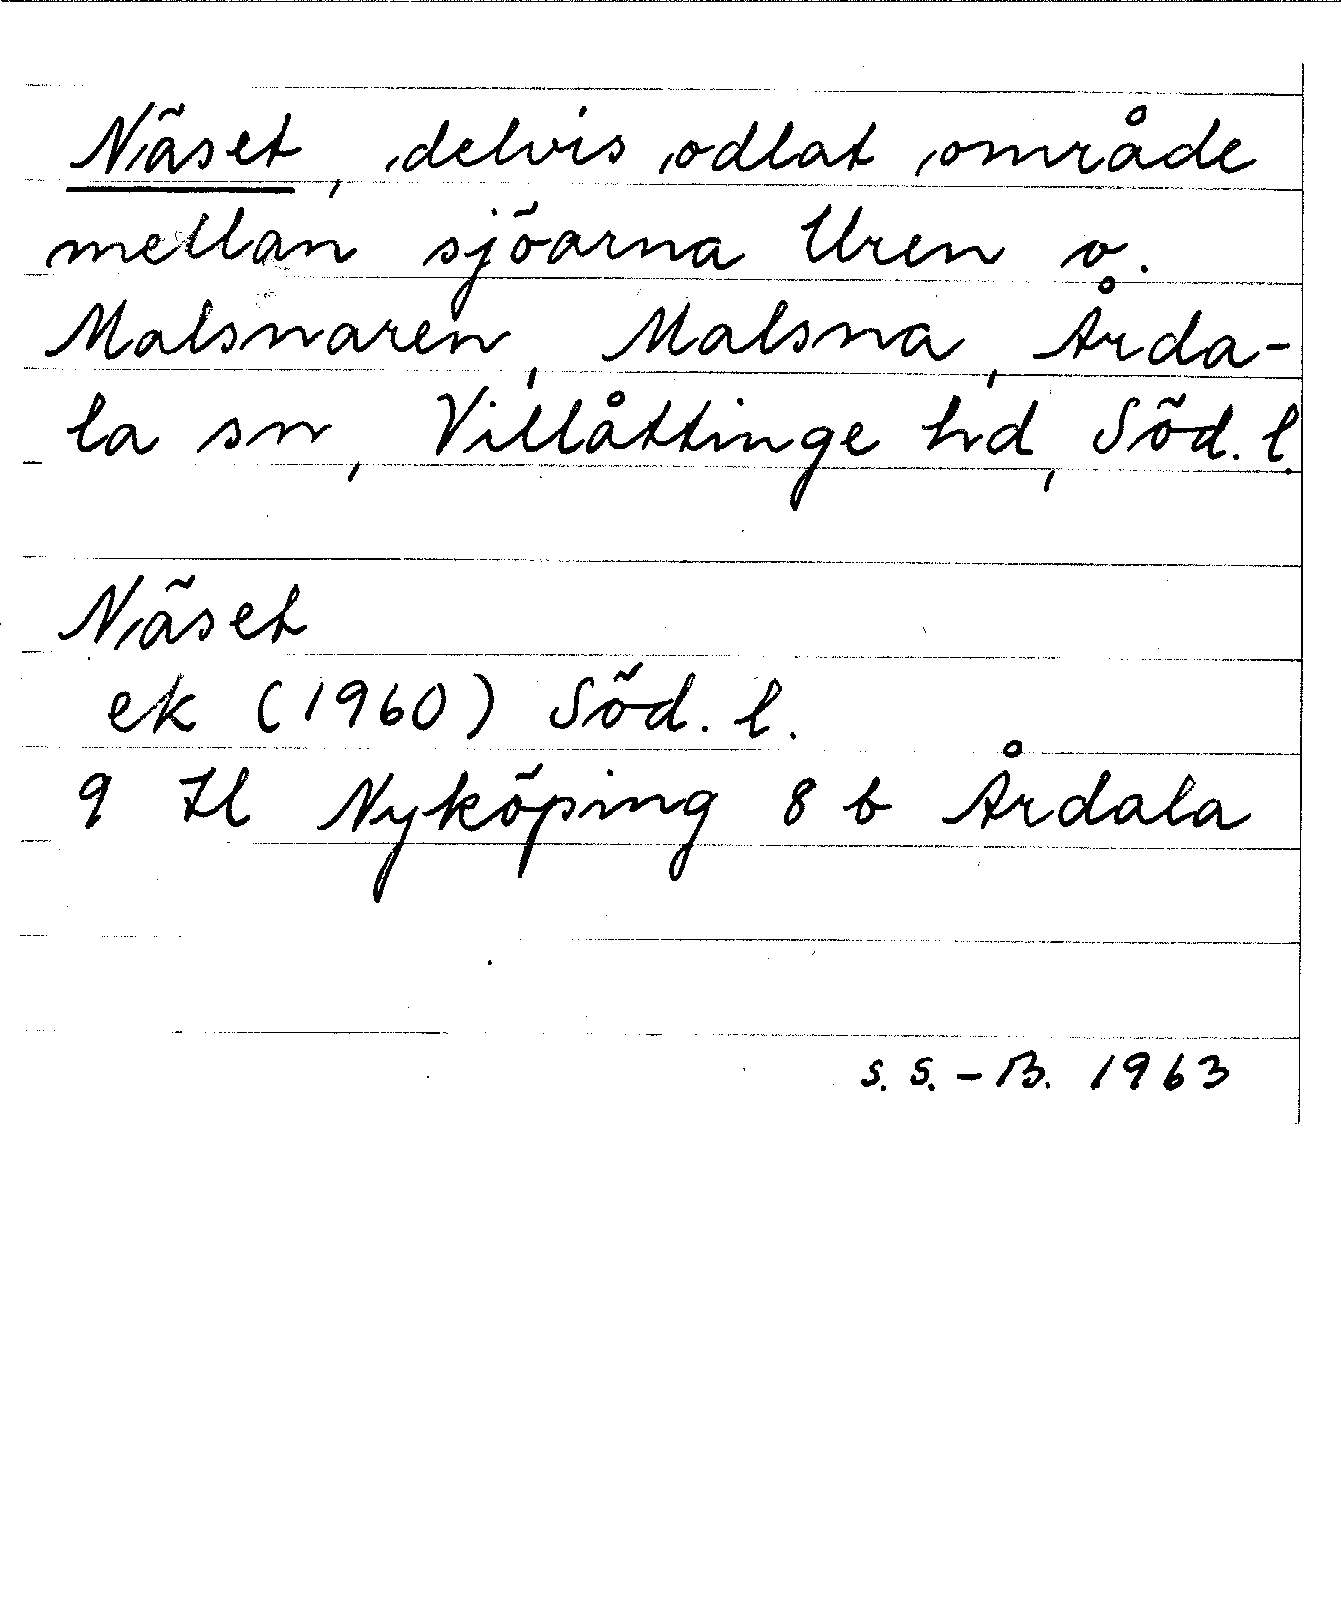 Näset, delvis odlat område
mellan sjöarna Uren o.
Malsnaren, Malsna, Årda-
la sn, Villåttinge hd, Söd. l.
Näset
ek (1960) Söd. l.
9 H Nyköping 8 b Årdala
S. S. - B. 1963